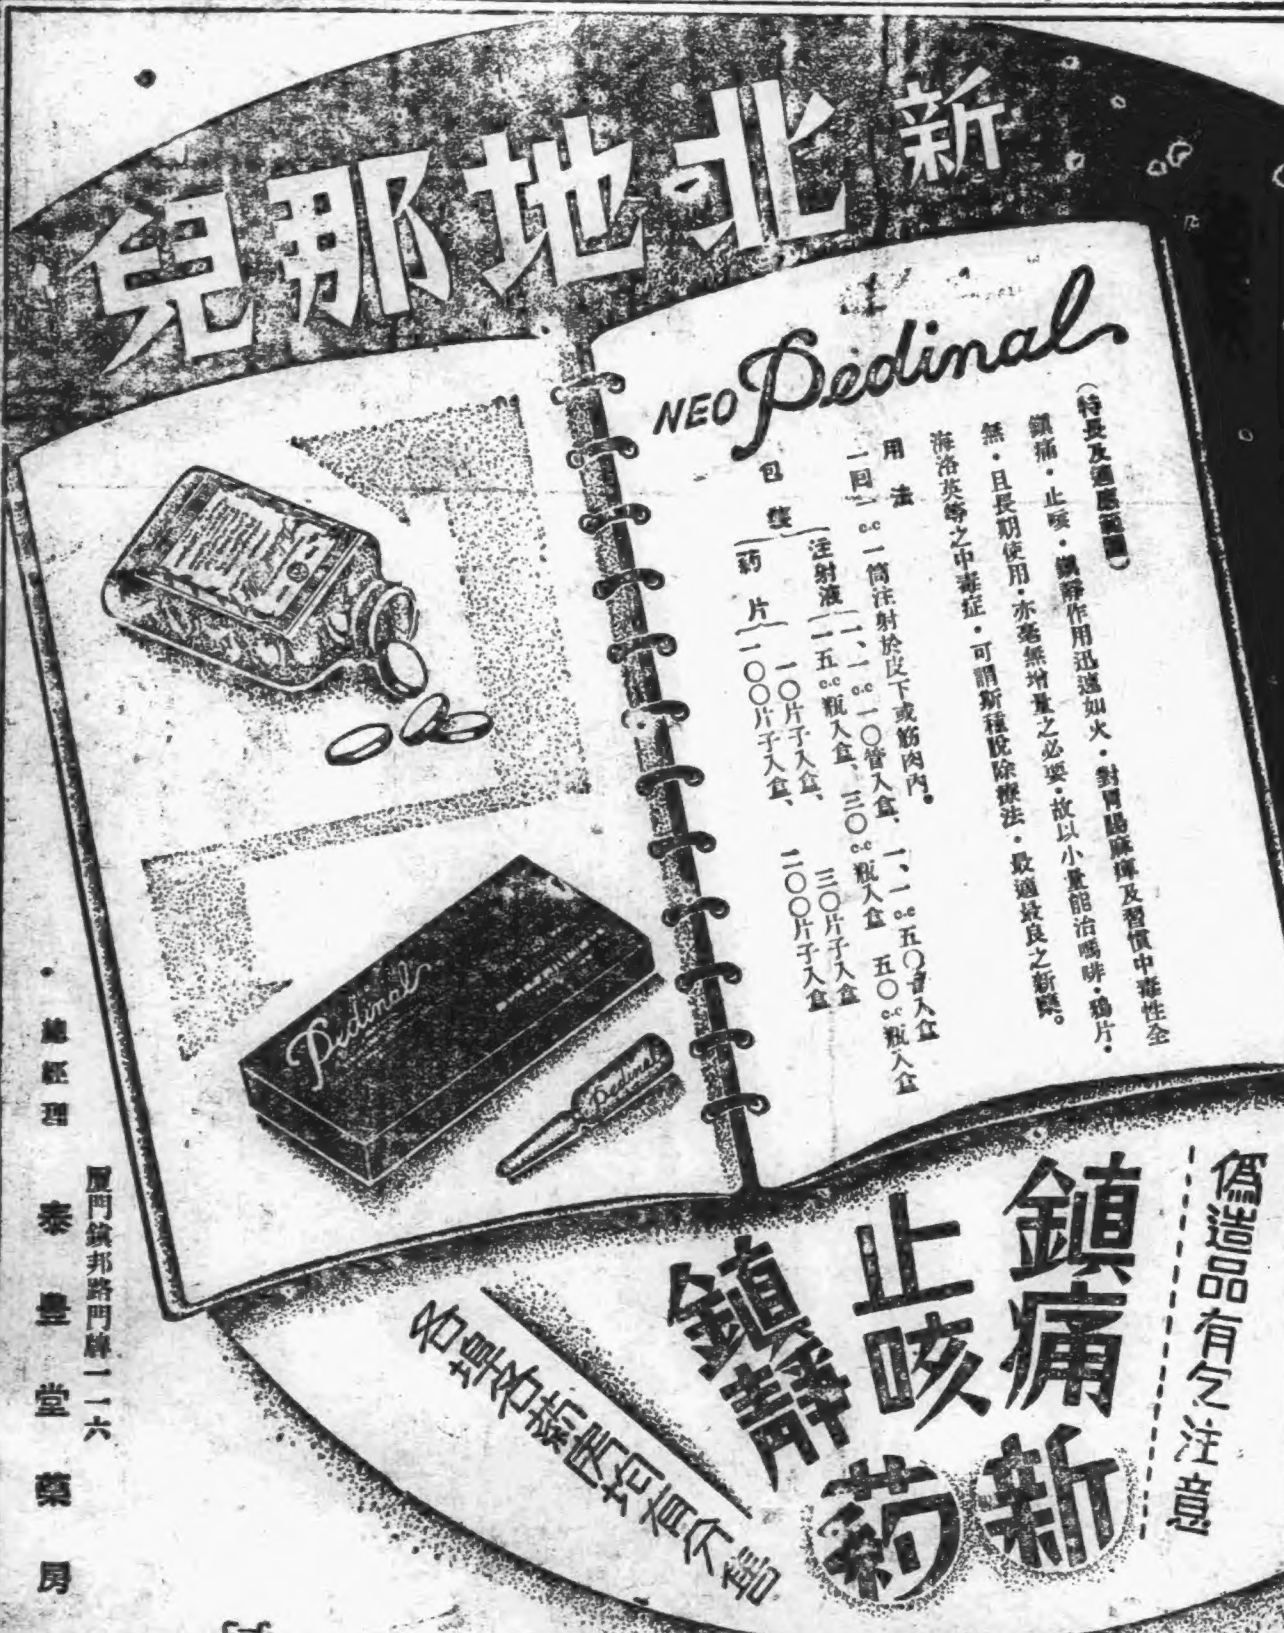 新北地那兒
NEO Pedinal
(特長及適應範圍)
鎮痛・止咳・鎮靜作用迅速如火・對胃腸麻痺及習慣中毒性全
無・且長期使用・亦毫無增量之必要・故以小量能治嗎啡・鴉片・
海洛英等之中毒症・可謂斯種脫除療法・最適最良之新藥。
用法
一回一c.c一筒注射於皮下或筋肉內。
包裝
注射液 一、一c.c一〇管入盒、一、一c.c五〇管入盒
一五c.c瓶入盒、三〇c.c瓶入盒 五〇c.c瓶入盒
葯片 一〇片子入盒、三〇片子入盒
一〇〇片子入盒、二〇〇片子入盒
Pedinal
Pedinal
偽造品有乞注意
鎮痛
止咳
鎮靜
新葯
各埠各葯房均有分售
總經理 泰豊堂藥房
厦門鎮邦路門牌一一六